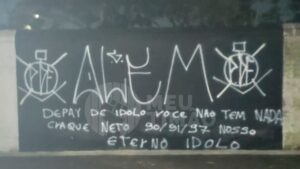 ALEM
MEU TIMÃO
DEPAY DE IDOLO VOCE NÃO TEM NADA
CRAQUE NETO 90/91/97 NOSSO
ETERNO IDOLO